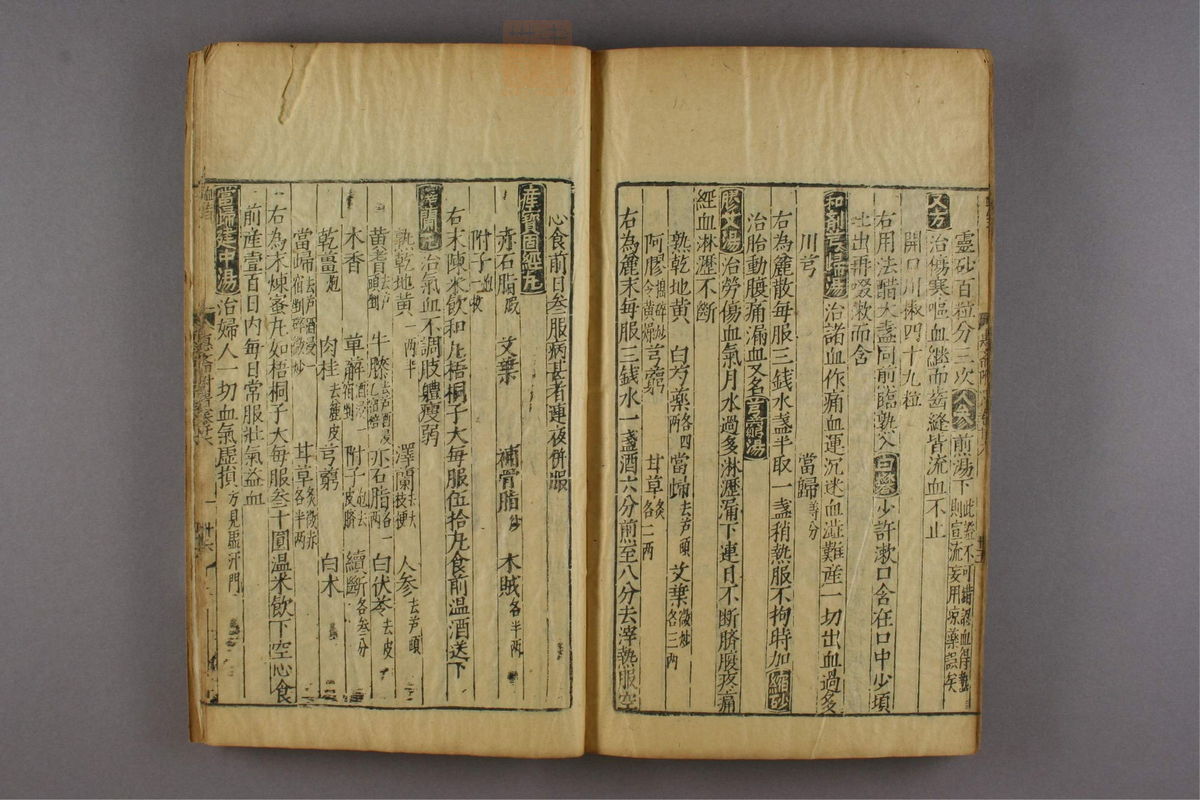 靈砂百粒分三次人参煎湯下此證不可錯認血得熱則宣流妄用凉藥誤矣
又方治傷寒嘔血繼而齒縫皆流血不止
開口川椒四十九粒
右用法醋大盞同煎臨熟入白礬少許漱口含在口中少頃
吐出再啜漱而含
和劑芎歸湯治諸血作痛血運沉迷血澁難産一切出血過多
川芎 當歸等分
右為麄散每服三錢水盞半取一盞稍熱服不拘時加縮砂
治胎動腹痛漏血又名芎藭湯
膠艾湯治勞傷血氣月水過多淋瀝漏下連日不断臍腹疼痛
經血淋瀝不断
熟乾地黄 白芍藥各四兩 當歸去芦頭 艾葉微炒各三兩
阿膠搗碎炒令黄燥 芎藭 甘草炙各二兩
右為麄末每服三錢水一盞酒六分煎至八分去滓熱服空
心食前日叁服病甚者連夜併服
產寶固經丸
赤石脂煅 艾葉 補骨脂炒 木賊各半兩
附子一枚炮
右末陳米飲和丸梧桐子大每服伍拾丸食前温酒送下
澤蘭丸治氣血不調肢軆瘦弱
熟乾地黄一兩半 澤蘭去大枝梗 人参去芦頭
黄耆去芦頭剉 牛膝去芦酒浸乙宿焙 赤石脂各一兩 白茯苓去皮
木香 萆薢酒浸一宿剉 附子炮去皮臍 續斷各叁分
乾薑炮 肉桂去麄皮 芎藭 白木
當歸去芦酒浸宿剉碎微炒 甘草炙微赤各半兩
右為末煉蜜丸如梧桐子大每服叁十圓温米飲下空心食
前産壹百日内每日常服壯氣益血
當歸建中湯治婦人一切血氣虛損方見虛汗門